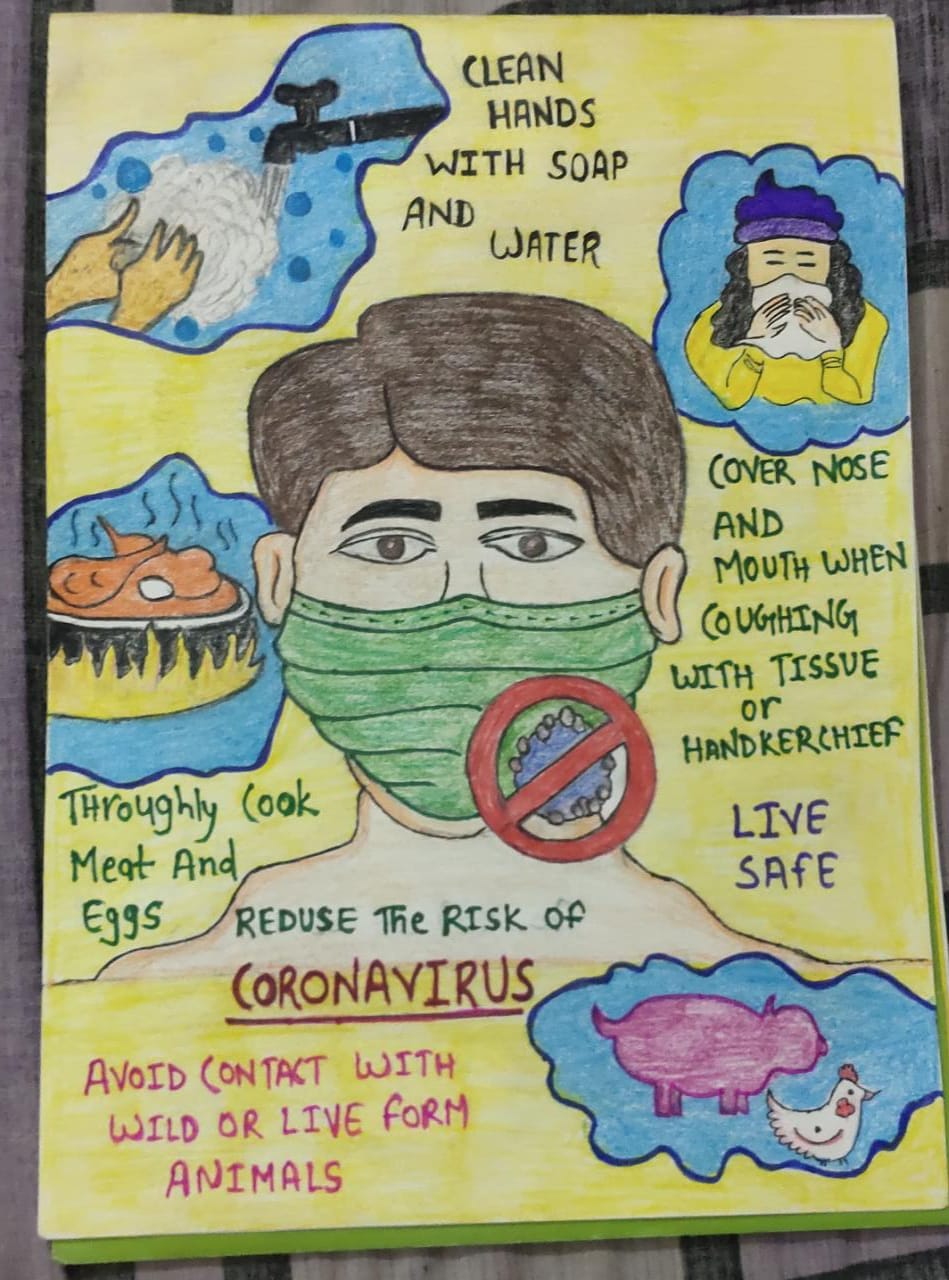 CLEAN
HANDS
WITH SOAP
AND
WATER
COVER NOSE
AND
MOUTH WHEN
COUGHING
WITH TISSUE
or
HANDKERCHIEF
LIVE
SAfE
THroughly Cook
Meat And
Eggs
REDUSE The RISK Of
CORONAVIRUS
AVOID CONTACT WITH
WILD OR LIVE fORM
ANIMALS